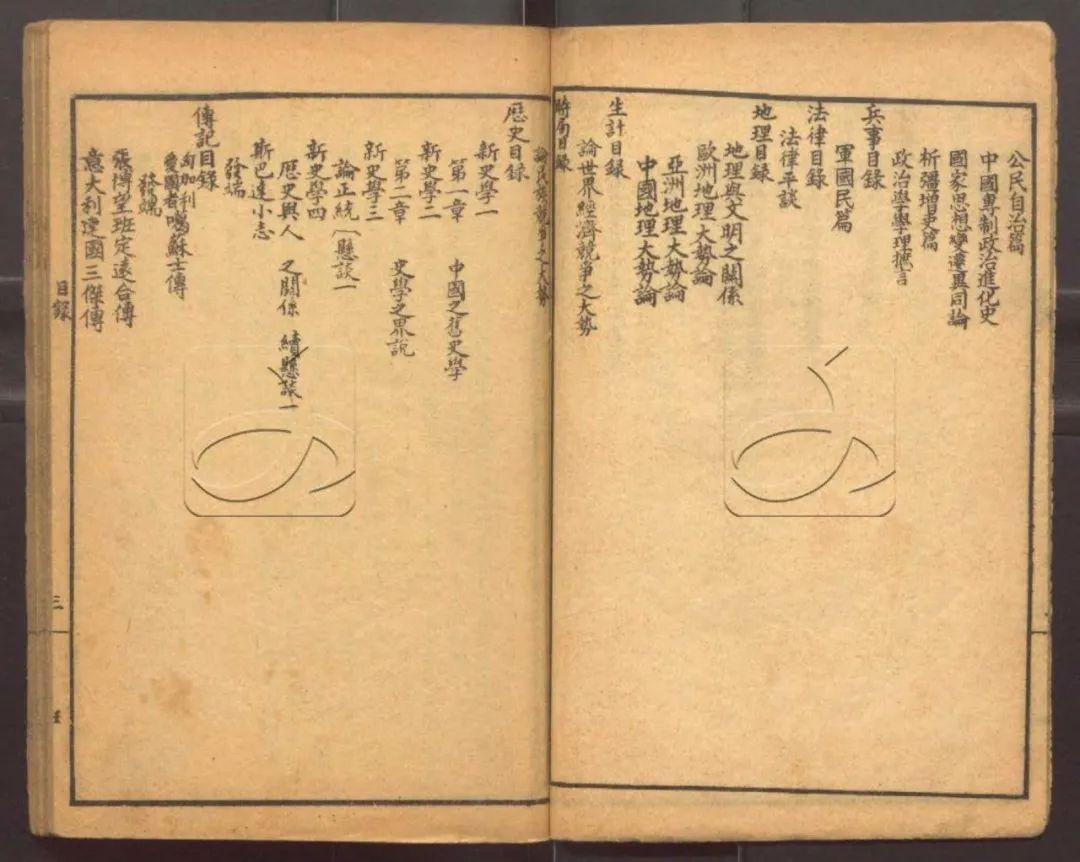 公民自治篇
中國專制政治進化史
國家思想變遷異同論
析疆增吏篇
政治學學理摭言
兵事目錄
軍國民篇
法律目錄
法律平談
地理目錄
地理與文明之關係
歐洲地理大勢論
亞洲地理大勢論
中國地理大勢論
生計目錄
論世界經濟競爭之大勢
時局目錄
論民族競爭之大勢
歷史目錄
新史學一
第一章 中國之舊史學
新史學二
第二章 史學之界說
新史學三
論正統〔懸談一
新史學四
歷史與人 之關係 續懸談一
斯巴達小志
發端
傳記目錄
匈加利
愛國者噶蘇士傳
發端
張博望班定遠合傳
意大利建國三傑傳
目錄
三